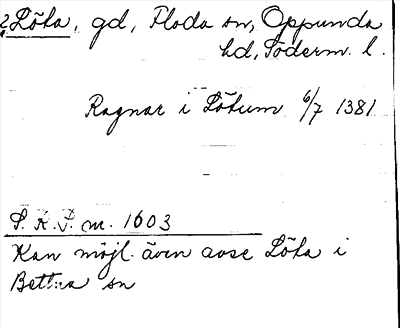 2 Löta, gd, Floda sn, Oppunda
hd, Söderm. l.
Ragnar i Lötum 6/7 1381
S. R. P. nr. 1603
Kan möjl. även avse Löta i
Bettna sn